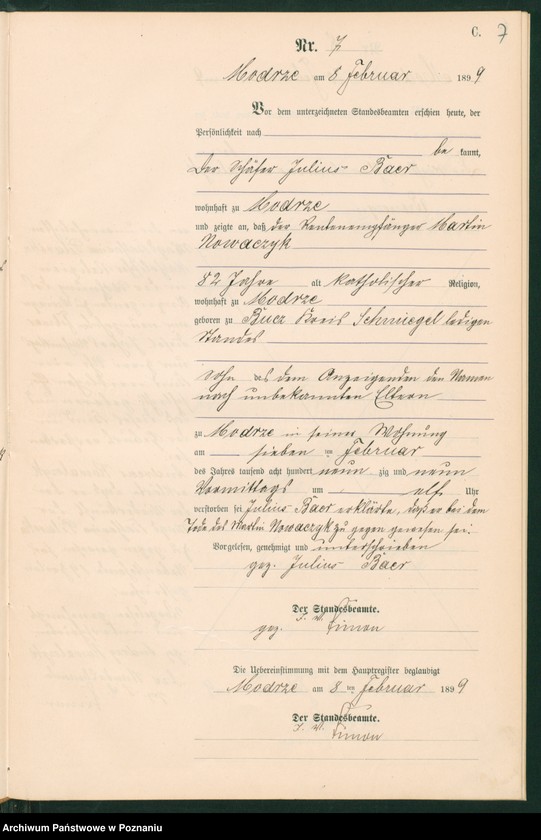 C. 7
Nr. 7
Modrze am 8 Februar 1899
Vor dem unterzeichneten Standesbeamten erschien heute, der
Persönlichkeit nach
be kannt,
Der Schäfer Julius Baer
wohnhaft zu Modrze
und zeigte an, daß der Rentenempfänger Martin
Nowaczyk
82 Jahre alt katholischer Religion,
wohnhaft zu Modrze
geboren zu Bucz Kreis Schmiegel ledigen
Standes
Sohn des dem Anzeigenden den Namen
nach unbekannten Eltern
zu Modrze in seiner Wohnung
am sieben ten Februar
des Jahres tausend acht hundert neun zig und neun
Vormittags um elf Uhr
verstorben sei Julius Baer erklärte, daß er bei dem
Tode des Martin Nowaczyk zu gegen gewesen sei.
Vorgelesen, genehmigt und unterschrieben
gez. Julius Baer
Der Standesbeamte.
I. V.
gez. Simon
Die Uebereinstimmung mit dem Hauptregister beglaubigt
Modrze am 8 ten Februar 1899
Der Standesbeamte.
I. V.
Simon
Archiwum Państwowe w Poznaniu